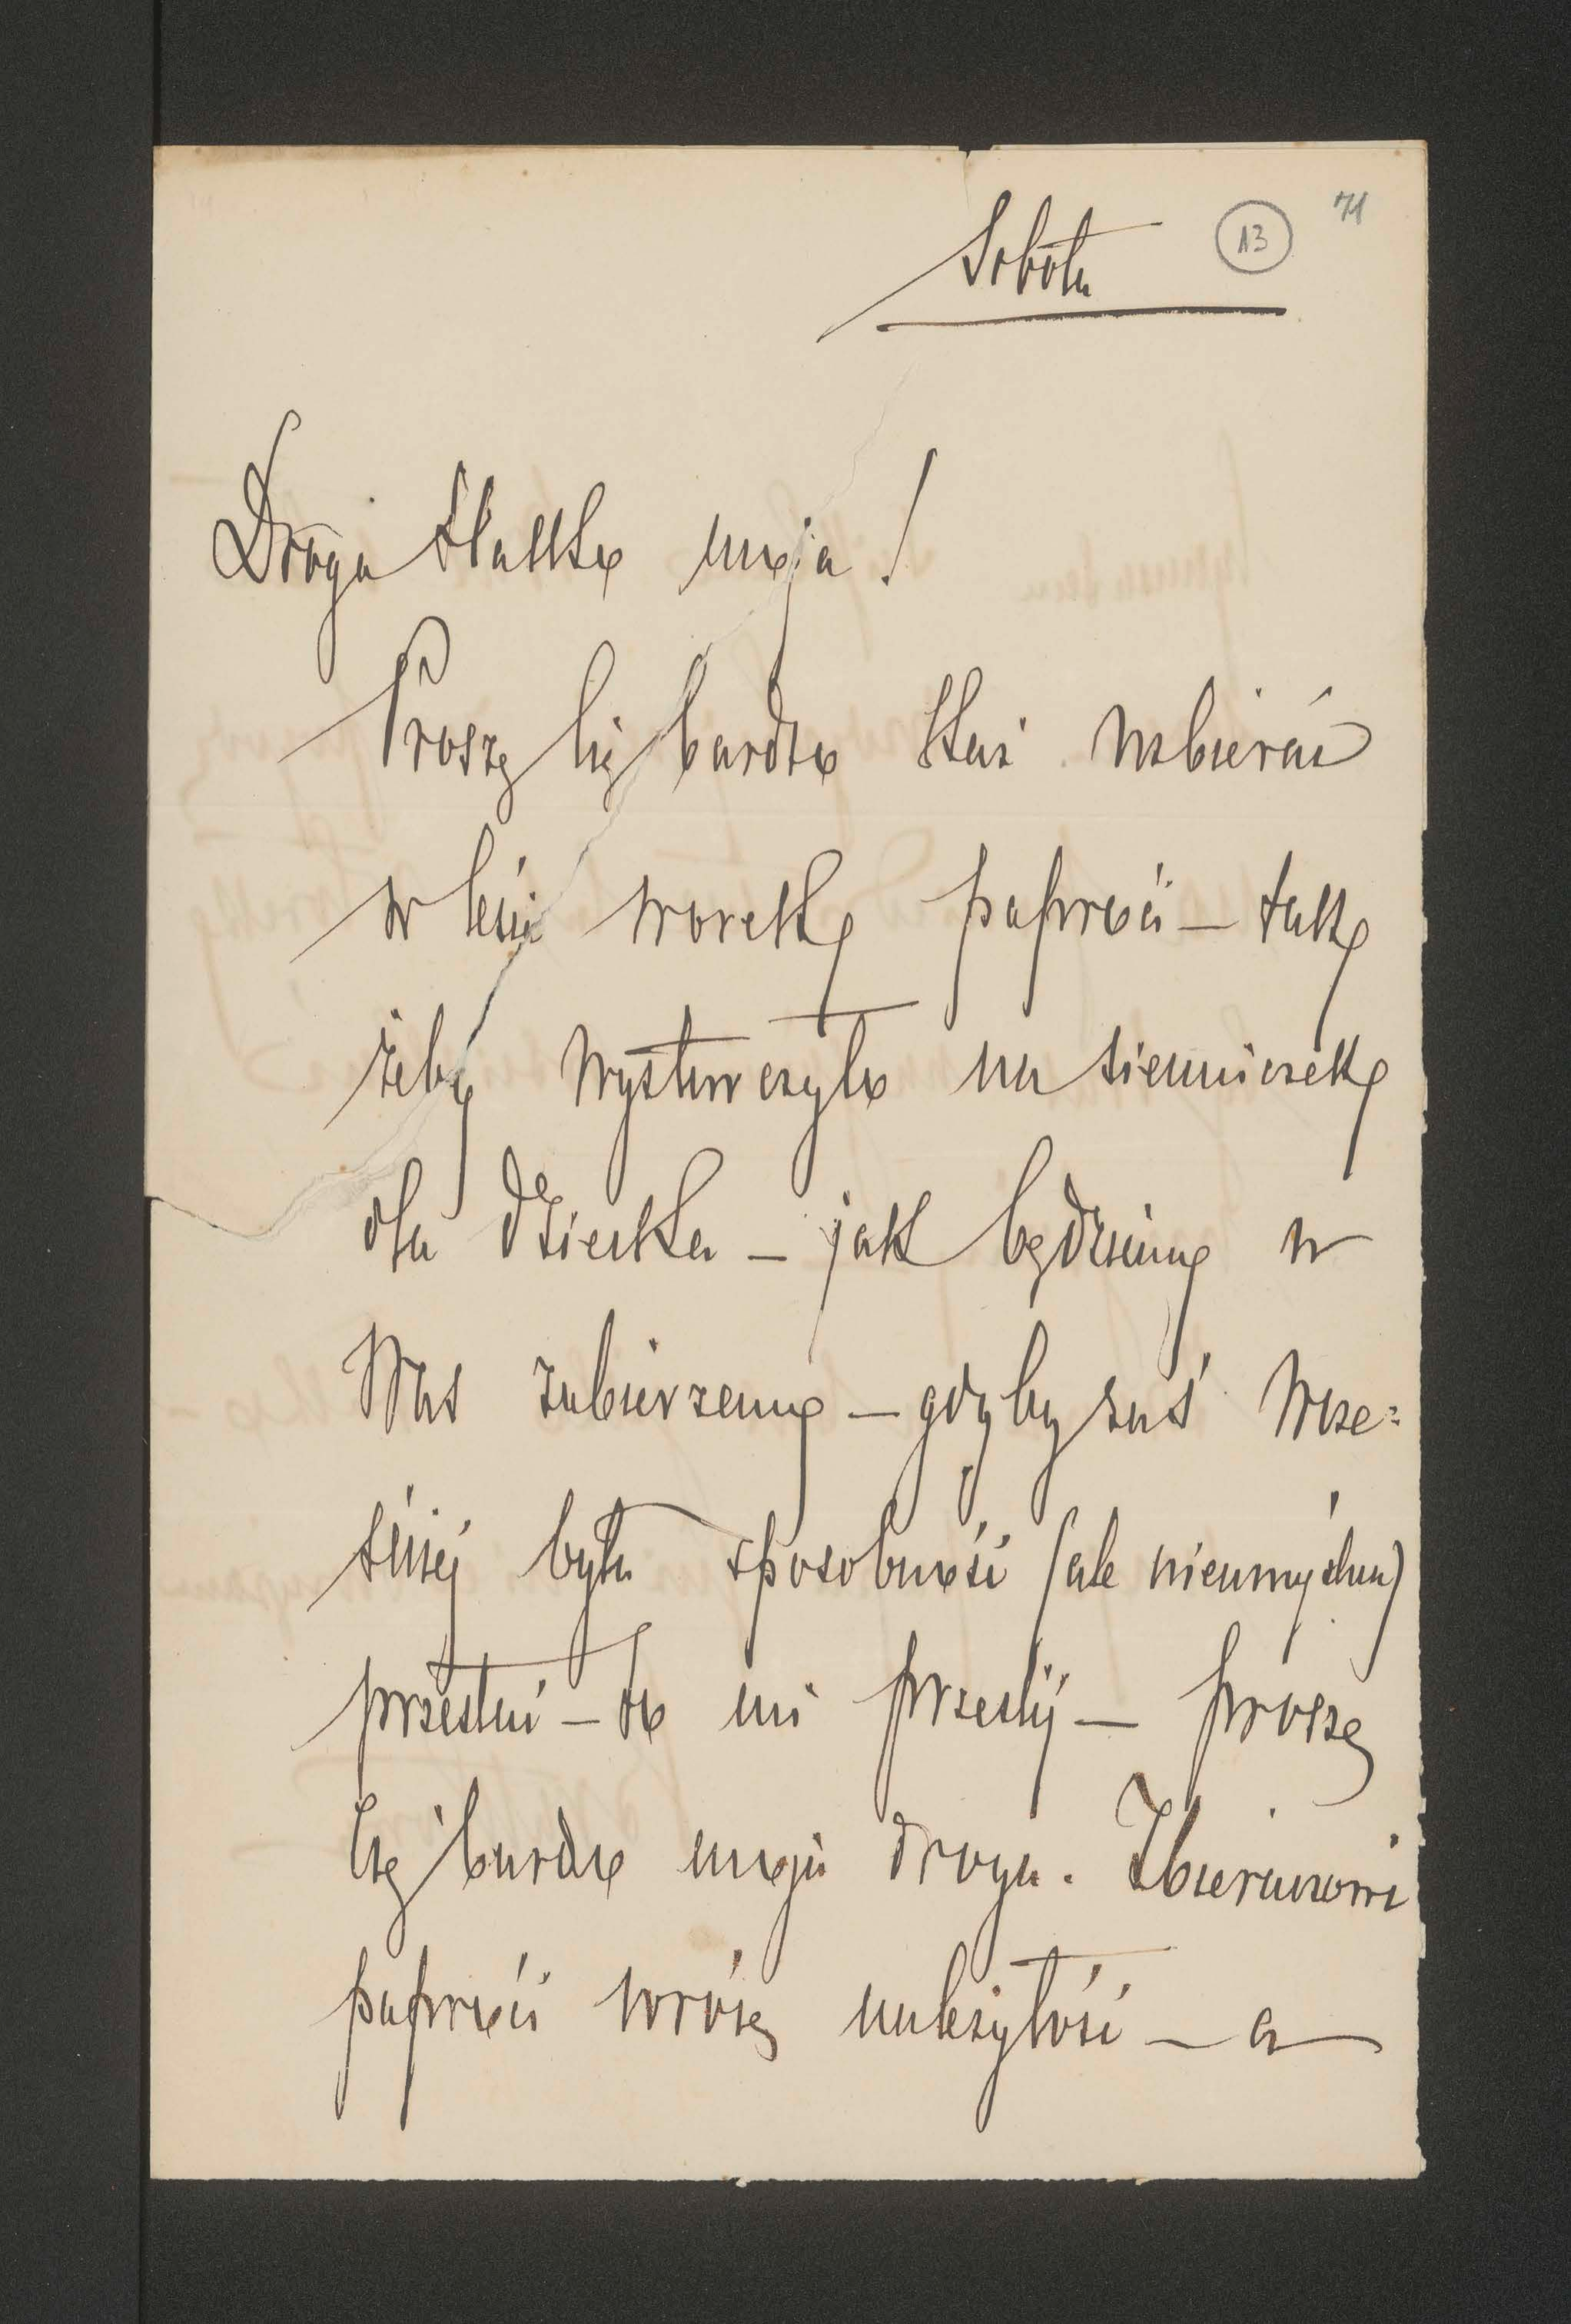 Sobota
13
71
Droga Matko moja!
Proszę Cię bardzo każ uzbierać
w lesie worek paproci – tak
żeby wystarczyło na sienniczek
dla dziecka – jak będziemy u
Was zabierzemy – gdyby zaś wcze=
śniej była sposobność (ale nieumyślna)
przesłać – to mi prześlij – proszę
Cię bardzo moja droga. Zbieraczowi
paproci wrócę należytość – a